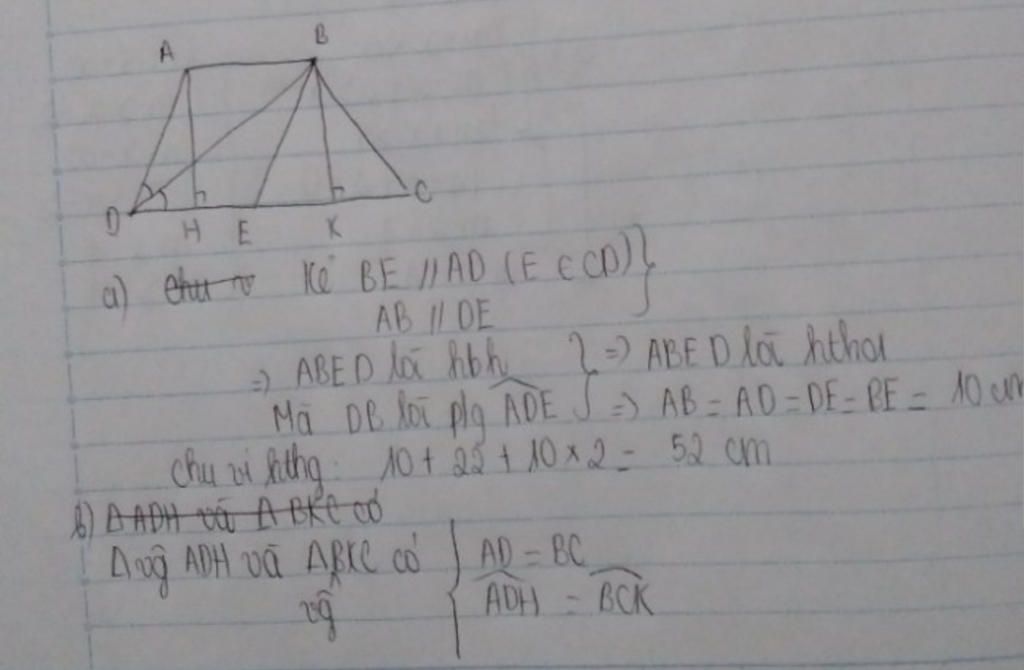 A B
D H E K C
a) Chu v Kẻ BE // AD (E ∈ CD) }
AB // DE
=> ABED là hbh } => ABED là hthoi
Mà DB là p/g ADE => AB = AD = DE = BE = 10 cm
Chu vi hthg: 10 + 22 + 10 × 2 = 52 cm
b) Δ ADH và Δ BKC có
Δ vg ADH và Δ BKC có { AD = BC
vg ADH = BCK